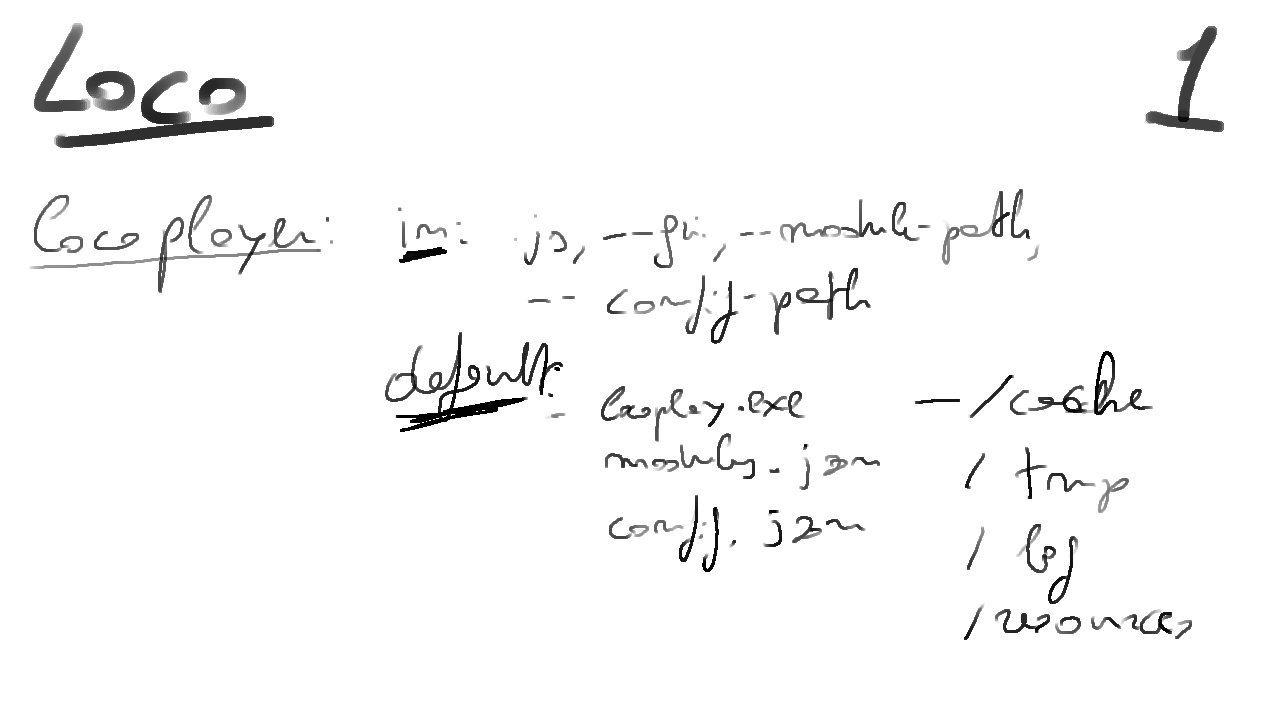 Loco 1
Locoplayer: in: js, --gui, --module-path,
--config-path
default:
- locoplay.exe - /cache
modules.json / tmp
config.json / log
/resources